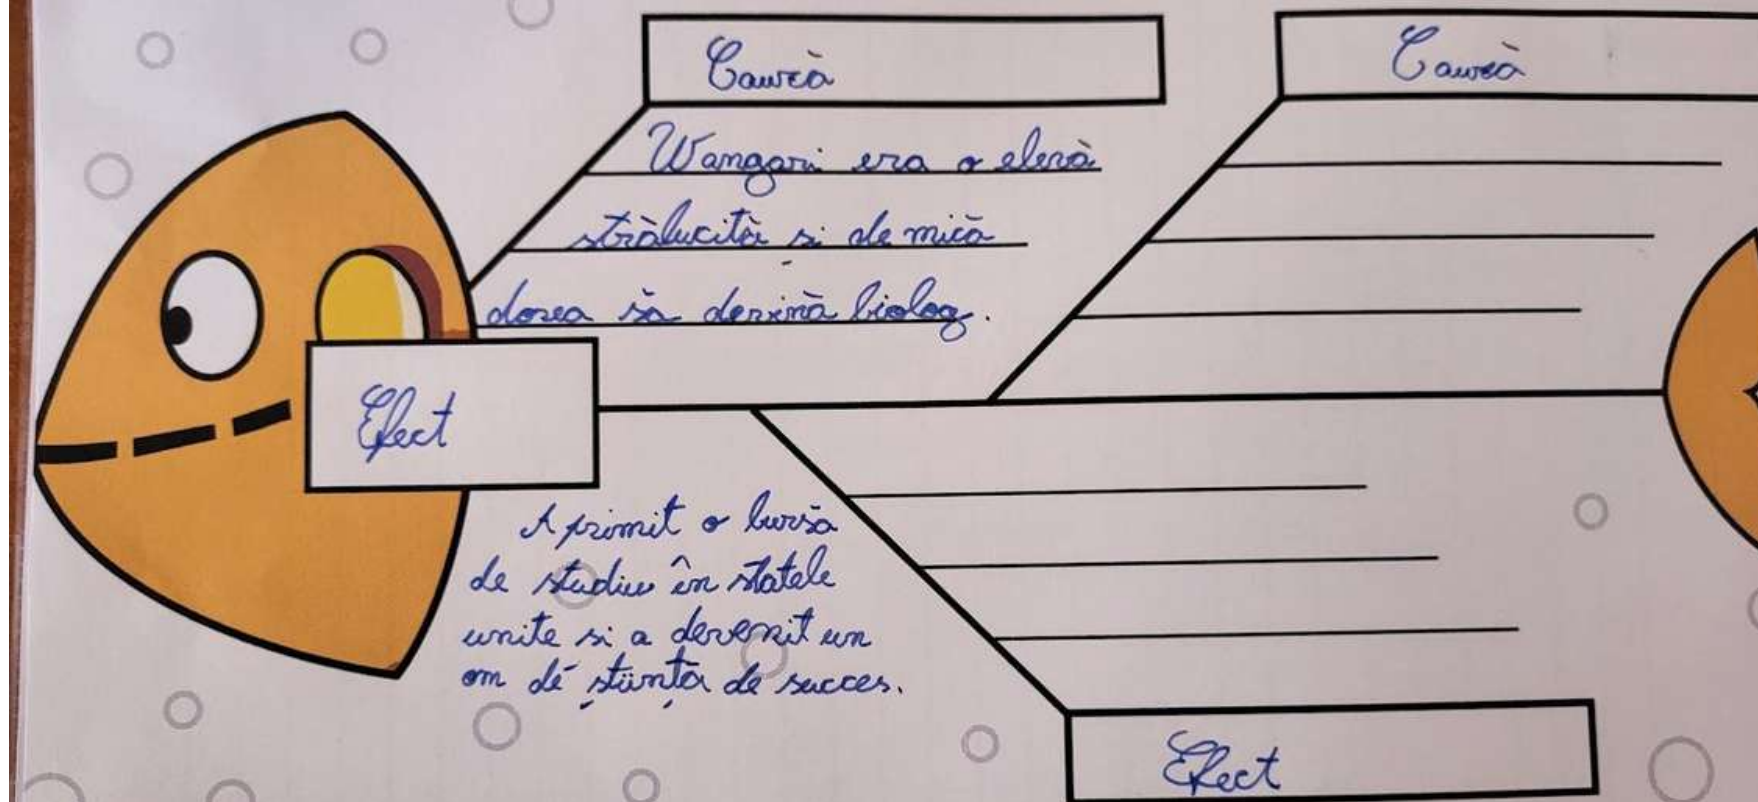 Cauză
Cauză
Wangari era o elevă
strălucită și de mică
dorea să devină biolog.
Efect
A primit o bursă
de studiu în statele
unite si a devenit un
om de știință de succes.
Efect